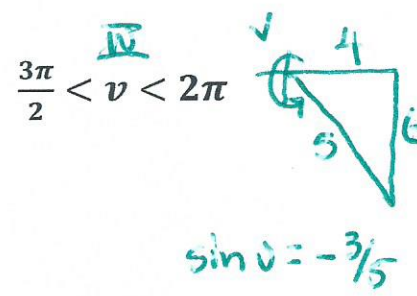 IV
3π/2 < v < 2π
v
4
5
sin v = -3/5